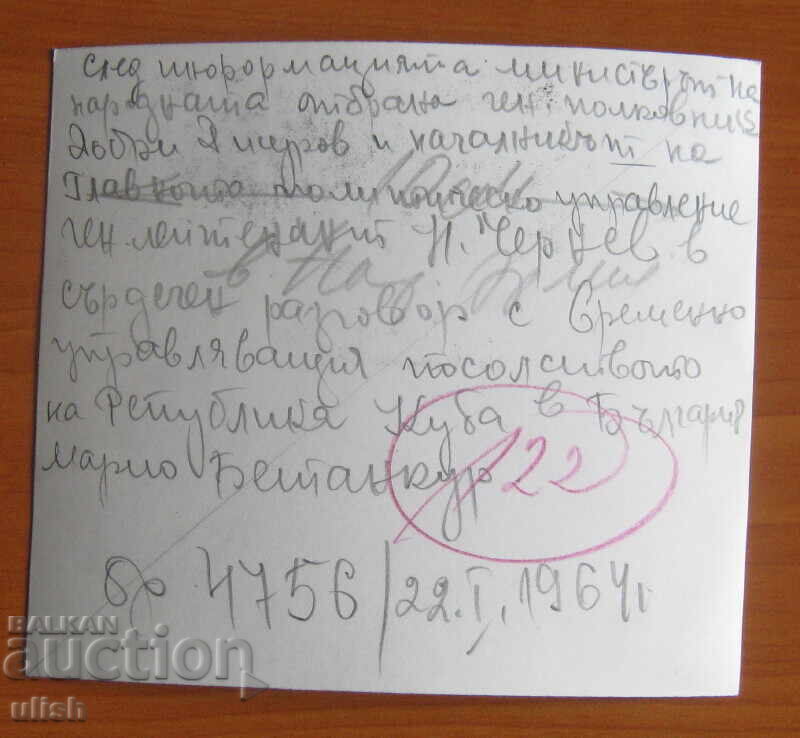 след информацията министърът на
народната отбрана ген. полковник
Добри Джуров и началникът на
Главното политическо управление
ген. лейтенант И. Чернев в
сърдечен разговор с временно
управляващия посолството
на Република Куба в България
Марио Бетанкур
22
бр 4756/22.I.1964г
BALKAN
auction
ulish